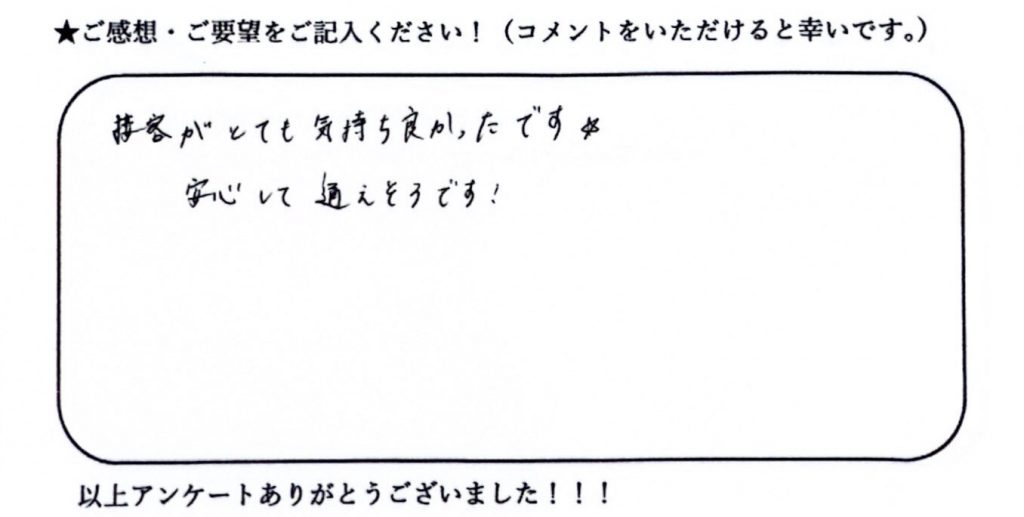 ★ご感想・ご要望をご記入ください！（コメントをいただけると幸いです。）
接客がとても気持ち良かったです☆
安心して通えそうです！
以上アンケートありがとうございました！！！